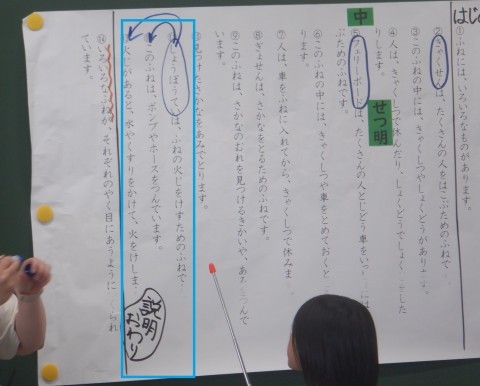 はじ
中
せつ明
①ふねには、いろいろなものがあります。
②きゃくせんは、たくさんの人をはこぶためのふねで
③このふねの中には、きゃくしつやしょくどうがあり
④人は、きゃくしつで休んだり、しょくどうでしょく
りします。
⑤フェリーボートは、たくさんの人とじどう車をいっ
ぶためのふねです。
⑥このふねの中には、きゃくしつや車をとめておくと
ります。
⑦人は、車をふねに入れてから、きゃくしつで休みま
⑧ぎょせんは、さかなをとるためのふねです。
⑨このふねは、さかなのむれを見つけるきかいや、あ
つんで
見つけたさかなをあみでとります。
しょうぼうていは、ふねの火じをけすためのふねで
このふねは、ポンプやホースをつんでいます。
火じがあると、水やくすりをかけて、火をけしま
説明おわり
⑭いろいろなふねが、それぞれのやく目にあうように
られ
ています。